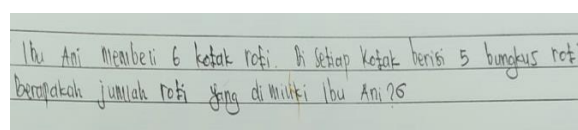 Ibu Ani membeli 6 kotak roti. Di setiap kotak berisi 5 bungkus roti
berapakah jumlah roti yang di miliki Ibu Ani?6